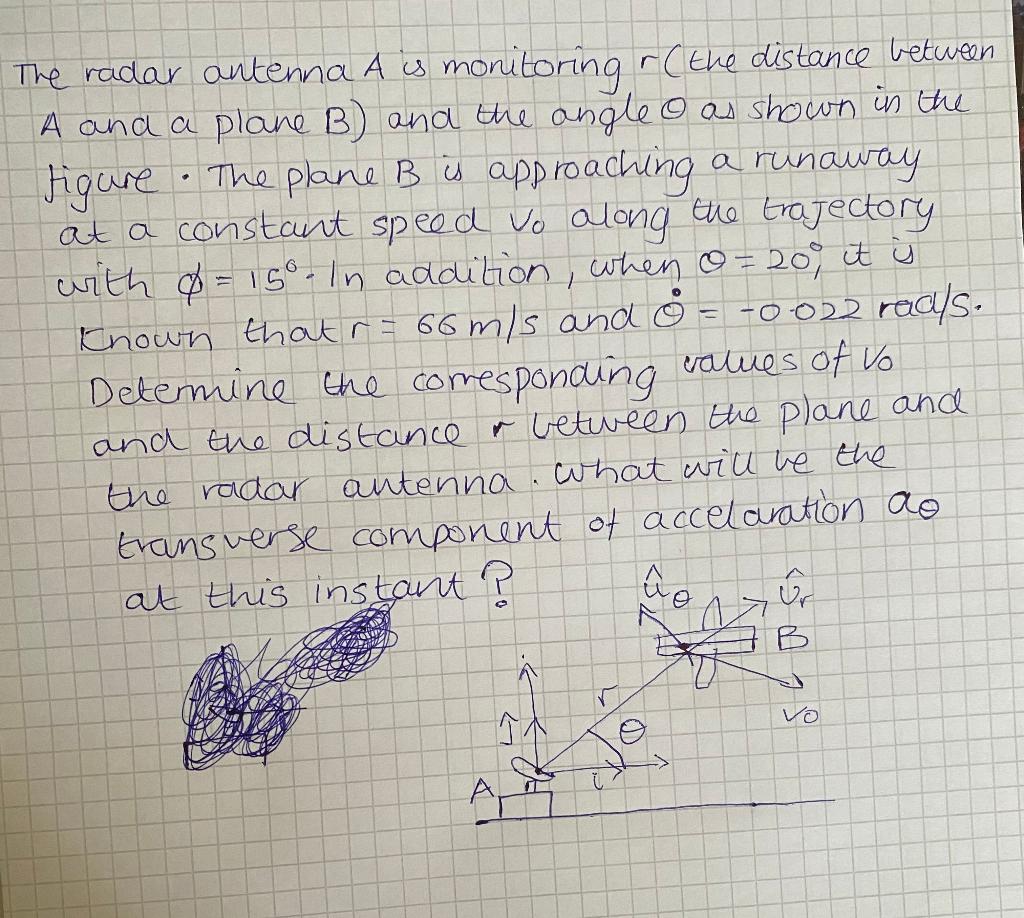 The radar antenna A is monitoring r (the distance between
A and a plane B) and the angle θ as shown in the
figure. The plane B is approaching a runaway
at a constant speed v₀ along the trajectory
with ϕ = 15°. In addition, when θ = 20°, it is
known that r = 66 m/s and θ̇ = -0.022 rad/s.
Determine the corresponding values of v₀
and the distance r between the plane and
the radar antenna. What will be the
transverse component of accelaration aθ
at this instant?
ûθ
Ûr
B
r
v₀
ĵ
θ
A
i